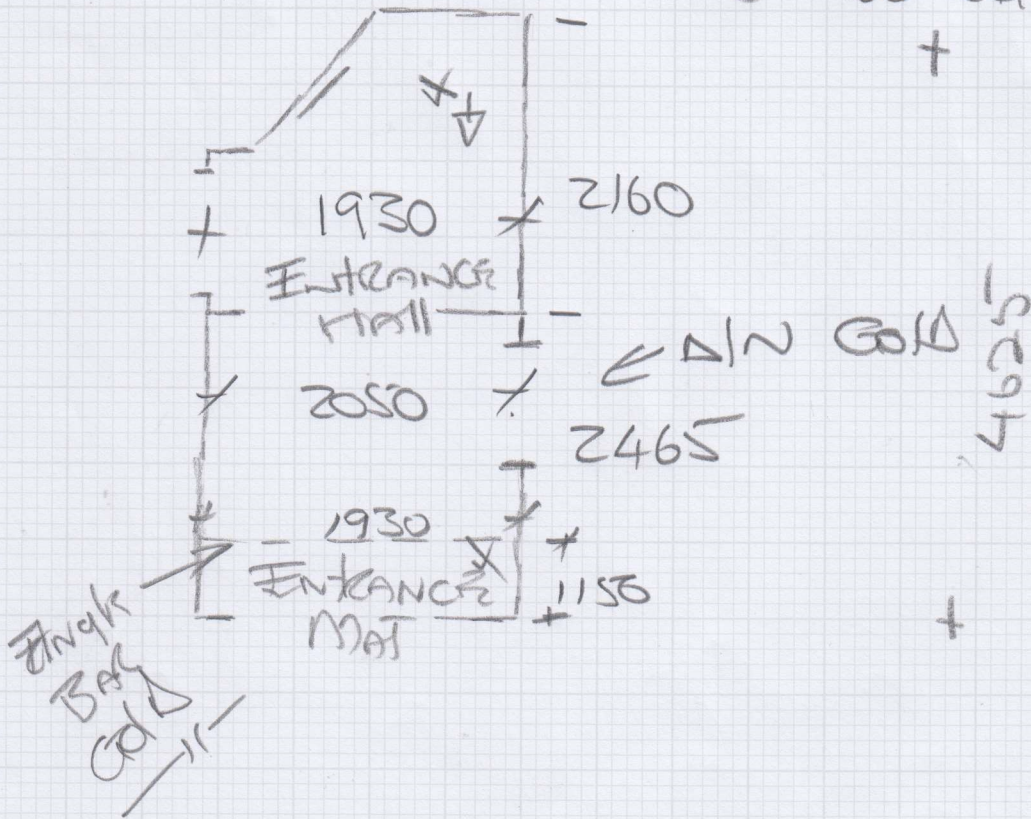 1930
2160
ENTRANCE
HAll
D/N GOlD
4625
2050
2465
1930
ENTRANCE
1150
MAT
BAR
GOlD